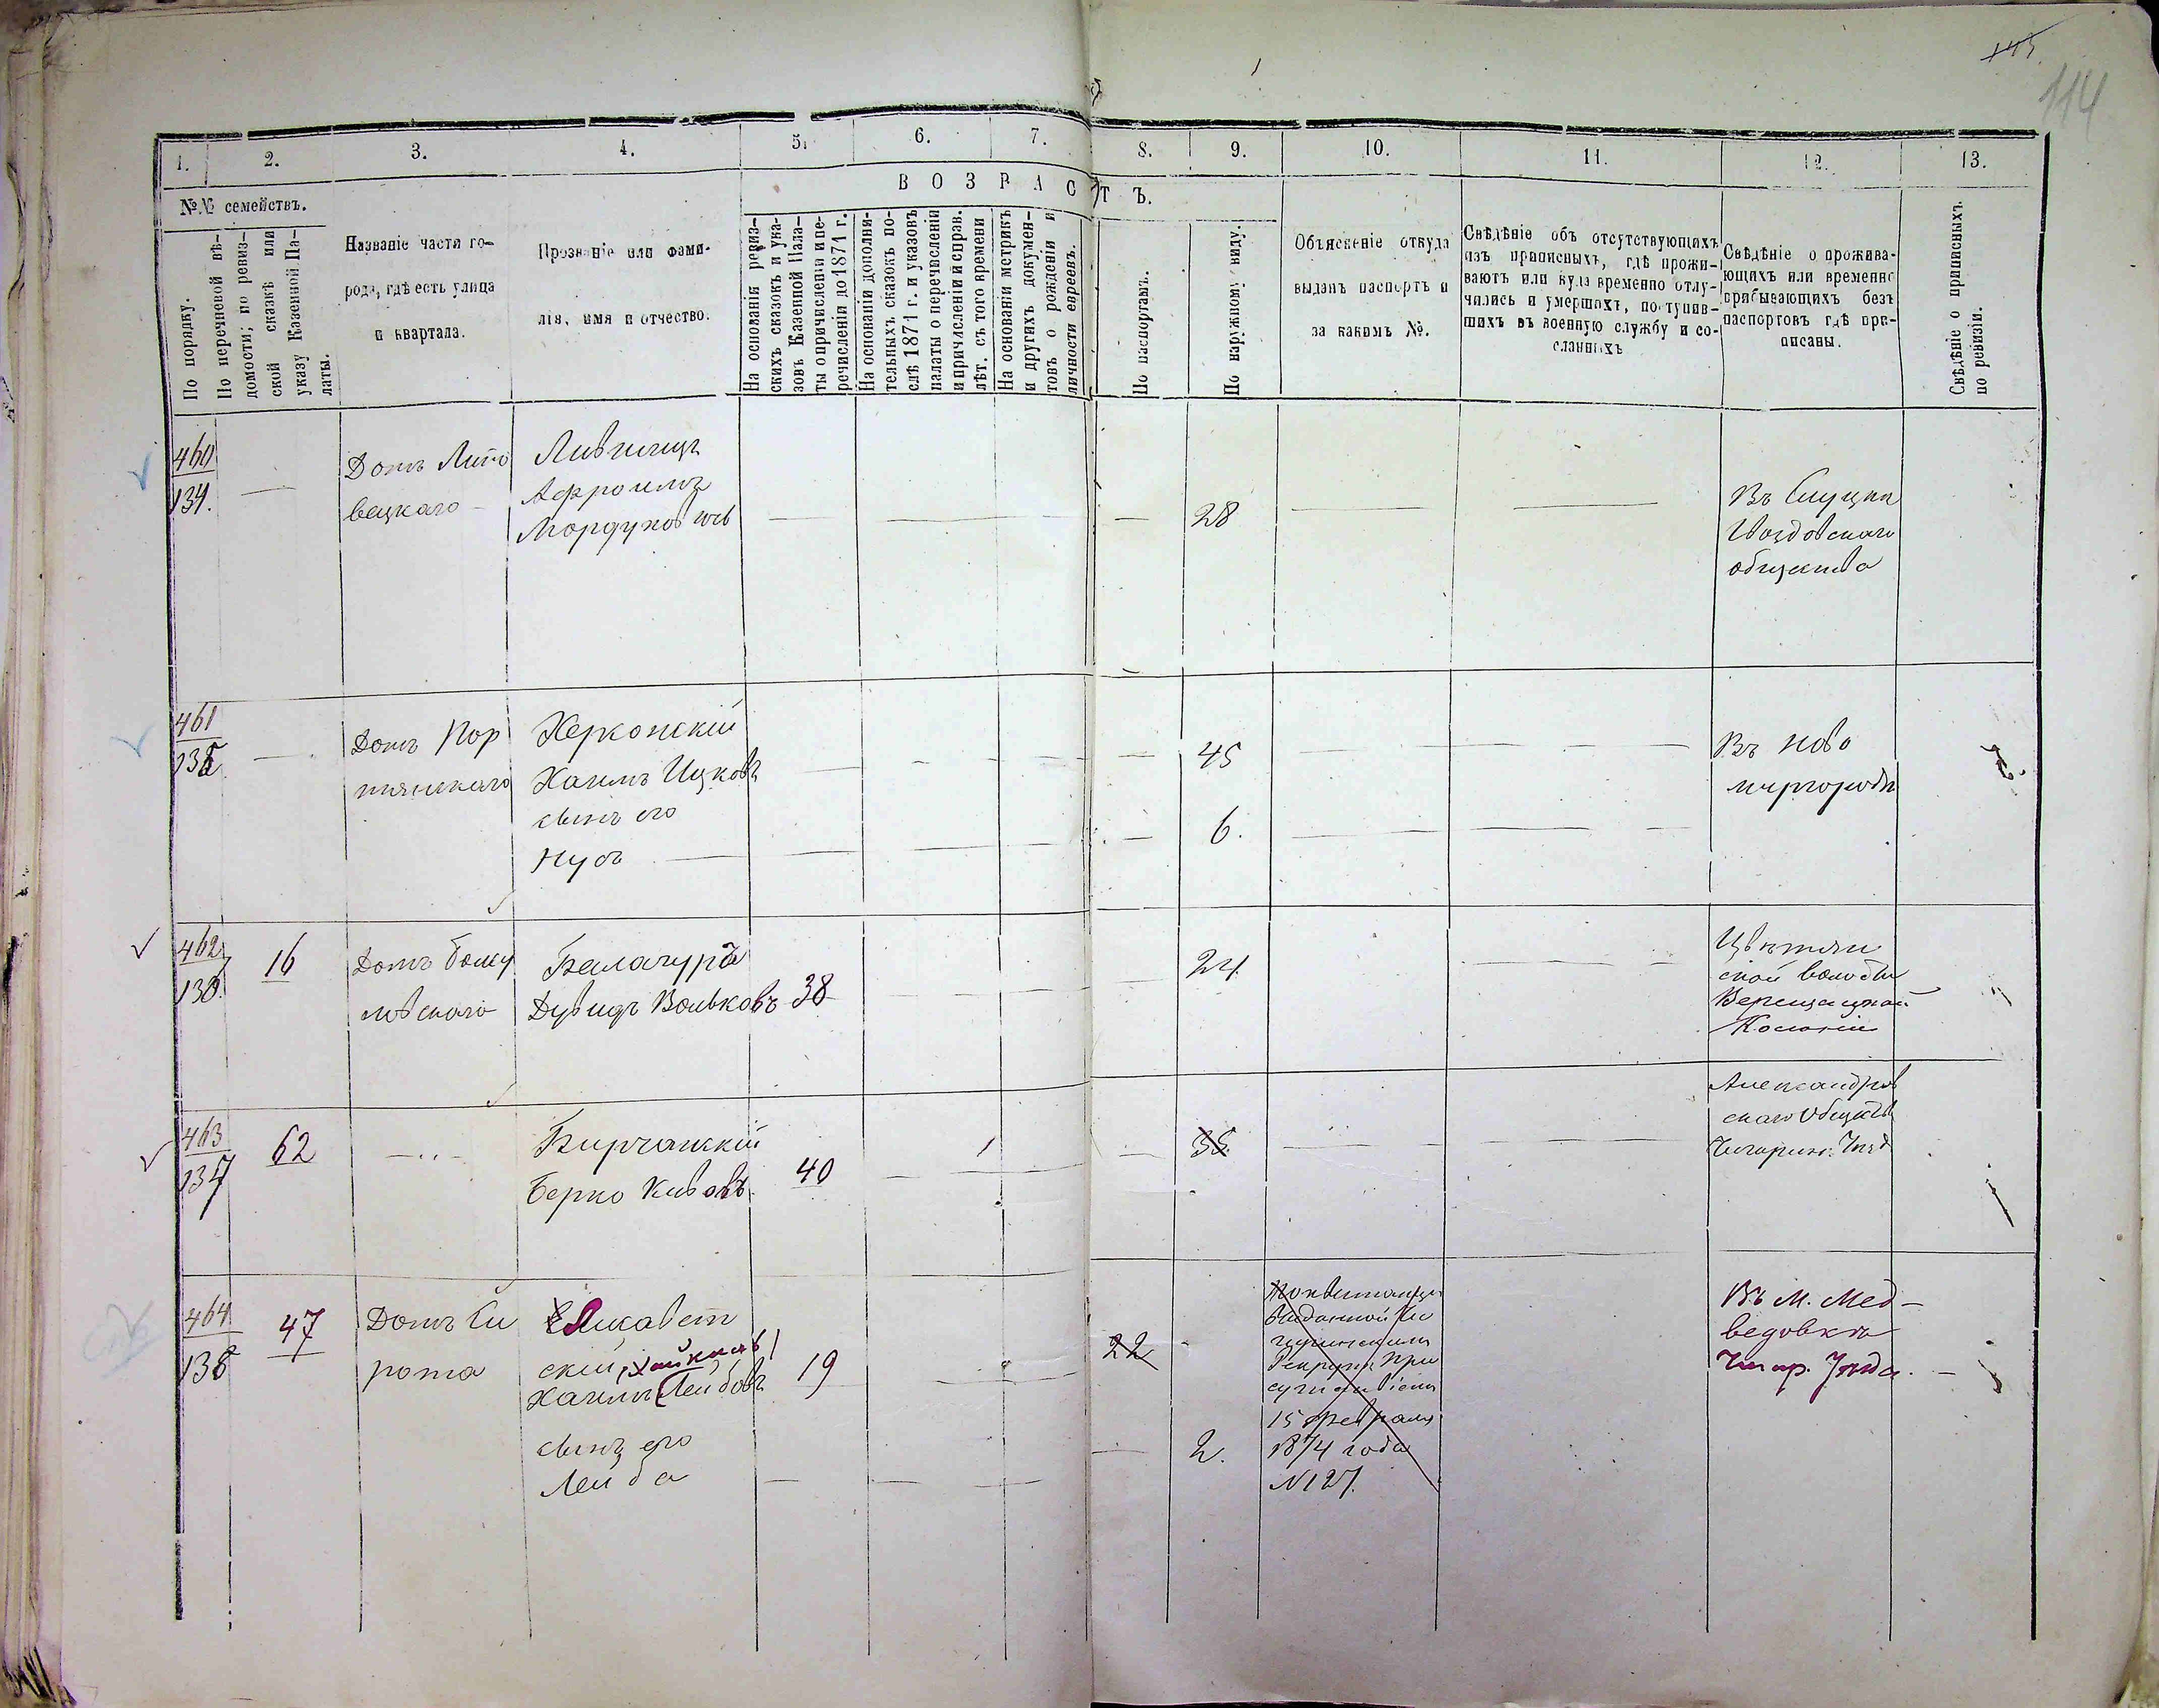 145.
114
1.
2.
3.
4.
5.
6.
7.
8.
9.
10.
11.
12.
13.
ВОЗРАСТЪ.
№№ семействъ.
По порядку.
По перечневой вѣ-
домости; по ревиз-
ской сказкѣ или
указу Казенной Па-
латы.
Названіе части го-
рода, гдѣ есть улица
и квартала.
Прозваніе или фами-
лія, имя и отчество.
На основаніи ревиз-
скихъ сказокъ и ука-
зовъ Казенной Пала-
ты о причисленіи и пе-
речисленіи до 1871 г.
На основаніи дополни-
тельныхъ сказокъ по-
слѣ 1871 г. и указовъ
палаты о перечисленіи
и причисленіи и справ.
лѣт. съ того времени
На основаніи метрикъ
и другихъ докумен-
товъ о рожденіи и
личности евреевъ.
По паспортамъ.
По наружному виду.
Объясненіе откуда
выданъ паспортъ и
за какимъ №.
Свѣдѣніе объ отсутствующихъ
изъ приписныхъ, гдѣ прожи-
ваютъ или куда временно отлу-
чились и умершихъ, поступив-
шихъ въ военную службу и со-
сланныхъ
Свѣдѣніе о прожива-
ющихъ или временно
прибывающихъ безъ
паспортовъ гдѣ при-
писаны.
Свѣдѣніе о приписныхъ
по ревизіи.
460
134.
Домъ Лито
вецкаго
Лившицъ
Афроимъ
Мордуховичъ
28
Въ
общества
461
135
Домъ Пор
Херсонскій
Хаимъ Ицковъ
сынъ его
Нусъ
45
6.
Въ Ново
миргородѣ
462
136
16
Домъ
Балагура
Дувидъ Вольковъ
38
24
ской волости
Верещацкой
Колоніи
463
137
62
Бирчанскій
Берко Кивовъ.
40
35
Александров
скаго Общества
Чигирин. Уѣзд
464
138
47
Домъ Си
рота
Елисавет
скій,
Хаимъ Лейбовъ
19
сынъ его
Лейба
22
2.
По квитанціи
выданной Чи
гиринскимъ
Рекрутск. При
сутствіемъ
15 февраля
1874 года
№ 127.
Въ М. Мед-
ведовкѣ
Чигир. Уѣзда.